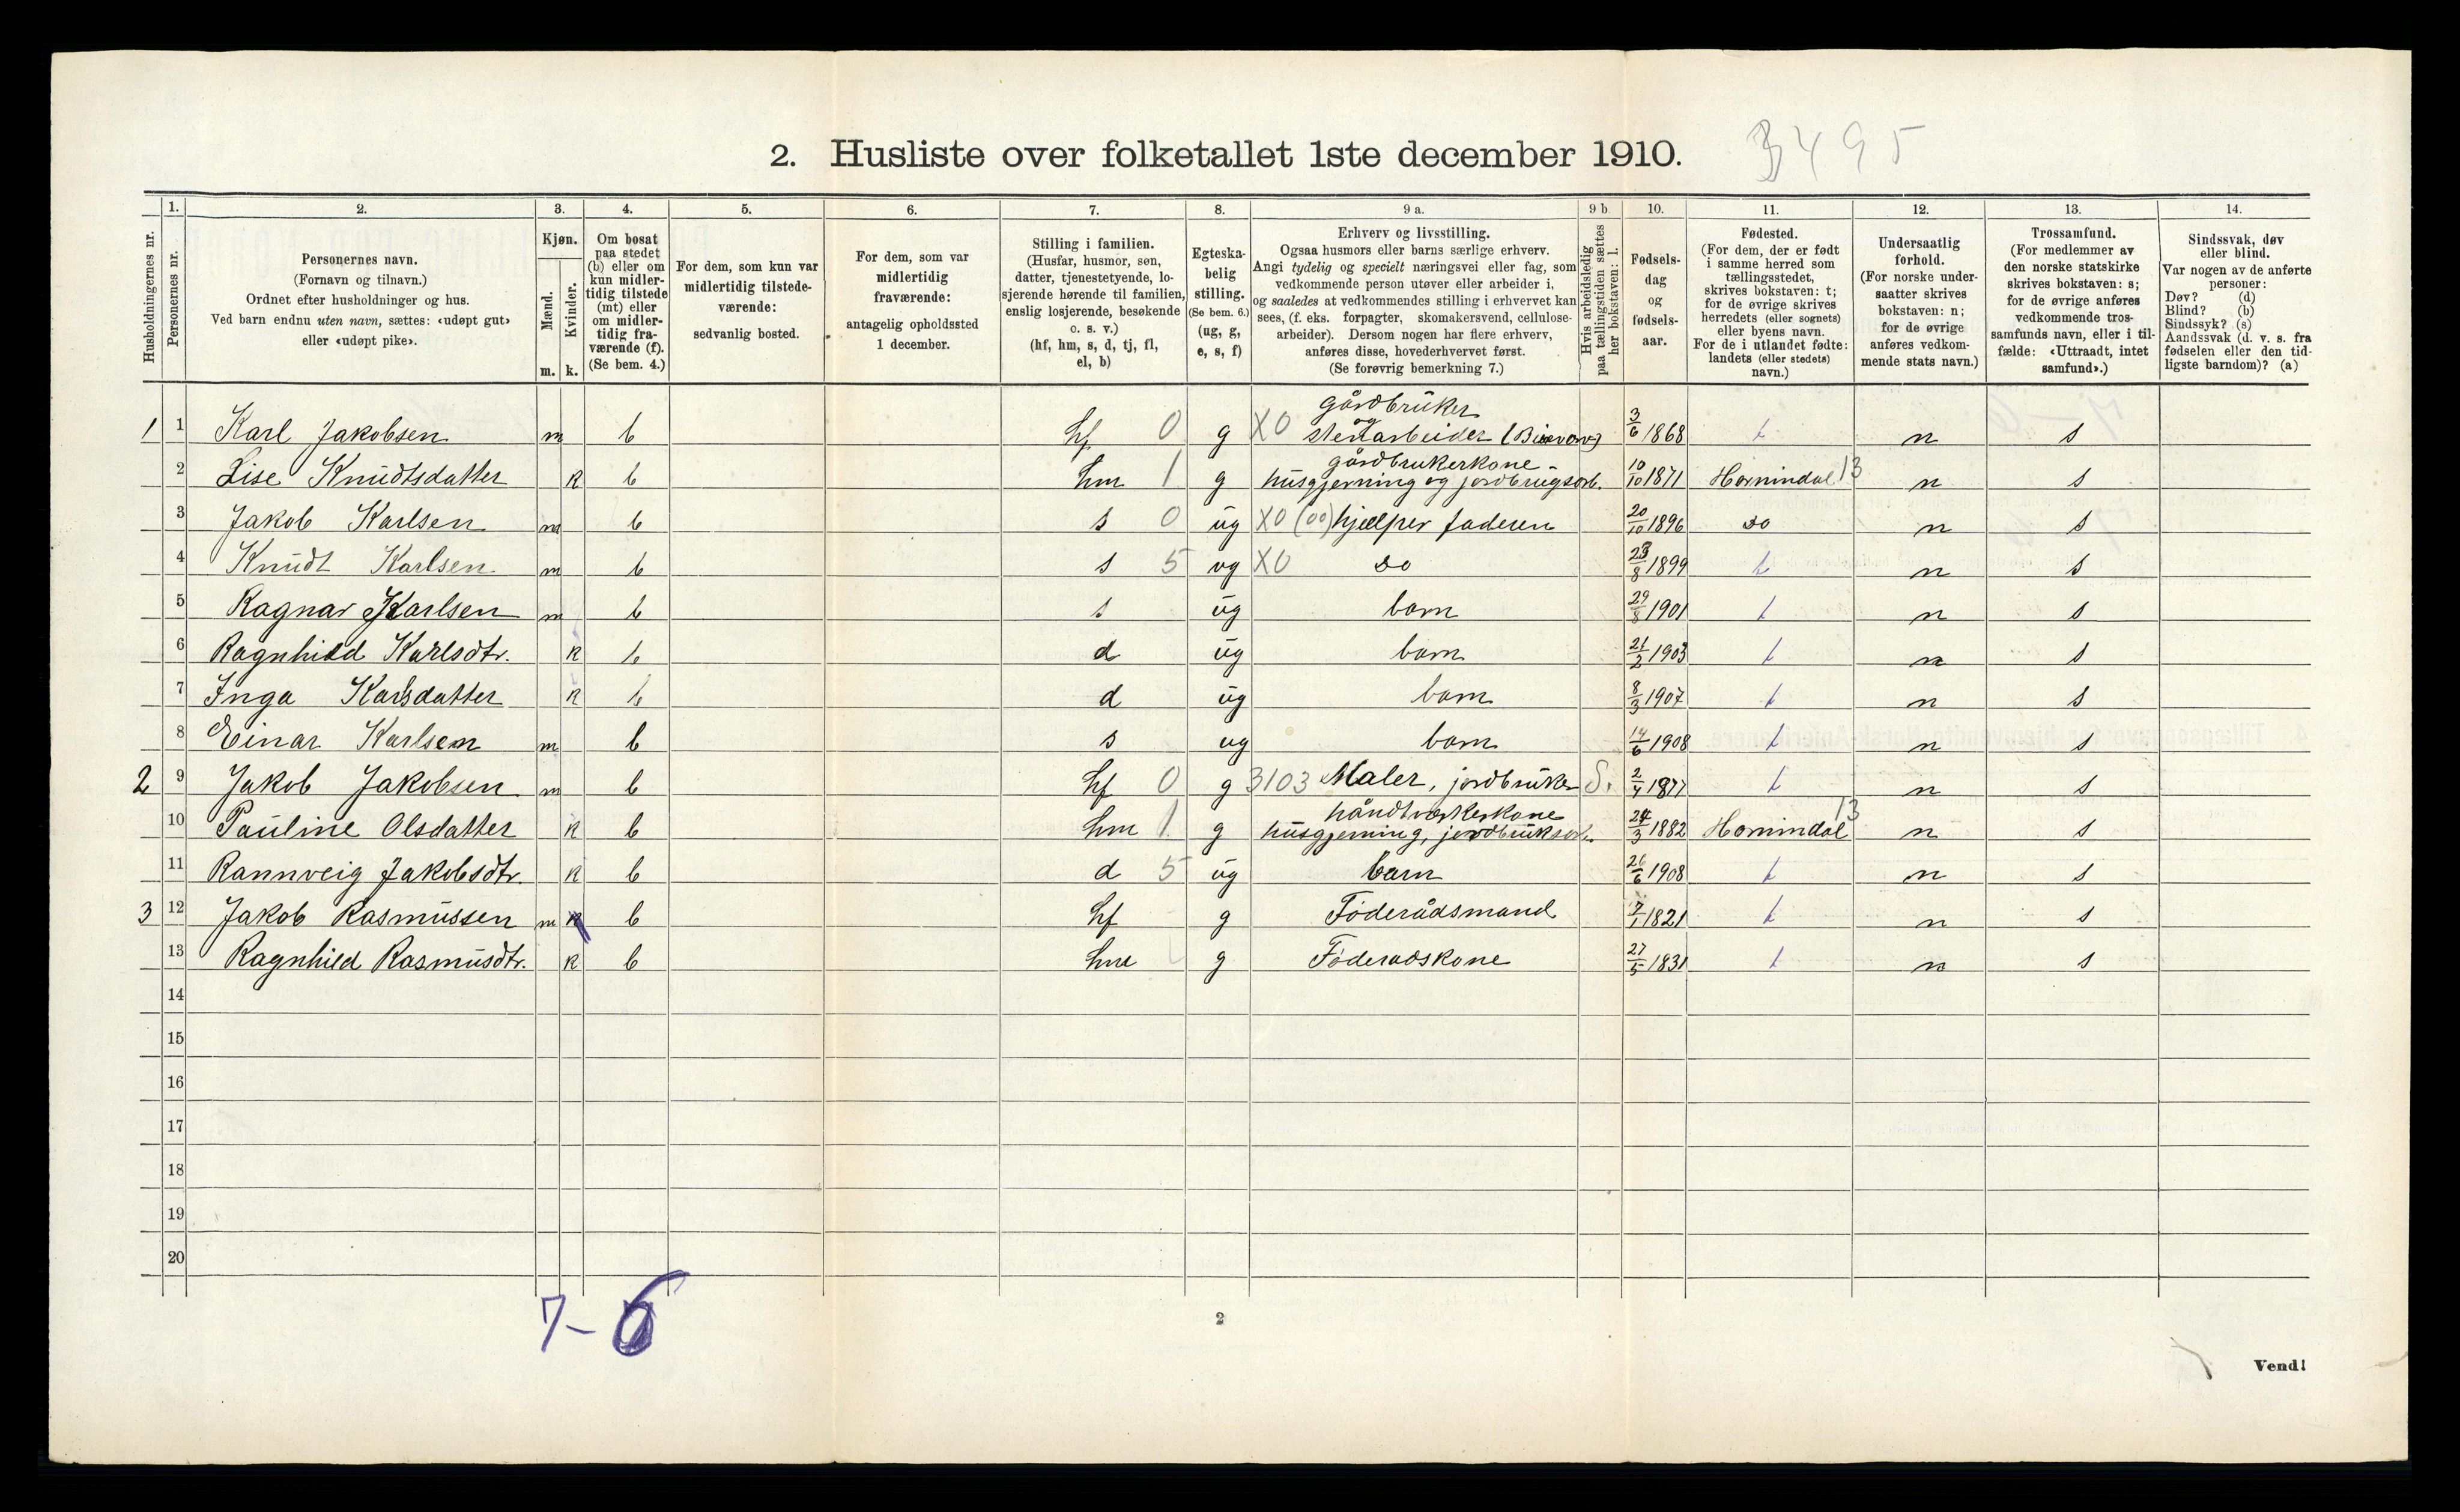 2. Husliste over folketallet 1ste december 1910. 3495
Husholdningernes nr.
1. Personernes nr.
2. Personernes navn.
(Fornavn og tilnavn.)
Ordnet efter husholdninger og hus.
Ved barn endnu uten navn, sættes: «udøpt gut»
eller «udøpt pike».
3. Kjøn.
Mænd. Kvinder.
m. k.
4. Om bosat
paa stedet
(b) eller om
kun midler-
tidig tilstede
(mt) eller
om midler-
tidig fra-
værende (f).
(Se bem. 4.)
5. For dem, som kun var
midlertidig tilstede-
værende:
sedvanlig bosted.
6. For dem, som var
midlertidig
fraværende:
antagelig opholdssted
1 december.
7. Stilling i familien.
(Husfar, husmor, søn,
datter, tjenestetyende, lo-
sjerende hørende til familien,
enslig losjerende, besøkende
o. s. v.)
(hf, hm, s, d, tj, fl,
el, b)
8. Egteska-
belig
stilling.
(Se bem. 6.)
(ug, g,
e, s, f)
9 a. Erhverv og livsstilling.
Ogsaa husmors eller barns særlige erhverv.
Angi tydelig og specielt næringsvei eller fag, som
vedkommende person utøver eller arbeider i,
og saaledes at vedkommendes stilling i erhvervet kan
sees, (f. eks. forpagter, skomakersvend, cellulose-
arbeider). Dersom nogen har flere erhverv,
anføres disse, hovederhvervet først.
(Se forøvrig bemerkning 7.)
9 b. Hvis arbeidsledig
paa tællingstiden sættes
her bokstaven: l.
10. Fødsels-
dag
og
fødsels-
aar.
11. Fødested.
(For dem, der er født
i samme herred som
tællingsstedet,
skrives bokstaven: t;
for de øvrige skrives
herredets (eller sognets)
eller byens navn.
For de i utlandet fødte:
landets (eller stedets)
navn.)
12. Undersaatlig
forhold.
(For norske under-
saatter skrives
bokstaven: n;
for de øvrige
anføres vedkom-
mende stats navn.)
13. Trossamfund.
(For medlemmer av
den norske statskirke
skrives bokstaven: s;
for de øvrige anføres
vedkommende tros-
samfunds navn, eller i til-
fælde: «Uttraadt, intet
samfund».)
14. Sindssvak, døv
eller blind.
Var nogen av de anførte
personer:
Døv? (d)
Blind? (b)
Sindssyk? (s)
Aandssvak (d. v. s. fra
fødselen eller den tid-
ligste barndom)? (a)
1 1 Karl Jakobsen m b hf 0 g X0 gårdbrüker og stenarbeider 3/6 1868 t n s
2 Lise Knüdtsdatter k b hm 1 g gårdbrukerkone husgjerning og jordbrügsarb. 10/10 1871 Hornindal 13 n s
3 Jakob Karlsen m b s 0 üg X0 (00) hjælper faderen 20/10 1896 do n s
4 Knüdt Karlsen m b s 5 ug X0 do 23/8 1899 t n s
5 Ragnar Karlsen m b s üg barn 29/8 1901 t n s
6 Ragnhild Karlsdtr. k b d üg barn 21/2 1903 t n s
7 Inga Karlsdatter k b d üg barn 8/3 1907 t n s
8 Einar Karlsen m b s ug barn 14/6 1908 t n s
2 9 Jakob Jakobsen m b hf 0 g 3103 Maler, jordbrüker S. 2/4 1877 t n s
10 Paüline Olsdatter k b hm 1 g håndtverkerkone hüsgjerning, jordbrüksarb. 24/3 1882 Hornindal 13 n s
11 Rannveig Jakobsdtr. k b d 5 üg barn 26/6 1908 t n s
3 12 Jakob Rasmüssen m k b hf g Föderådsmand 7/1 1821 t n s
13 Ragnhild Rasmüsdtr. k b hm g Föderadskone 27/5 1831 t n s
14
15
16
17
18
19
20
7-6
2
Vend!